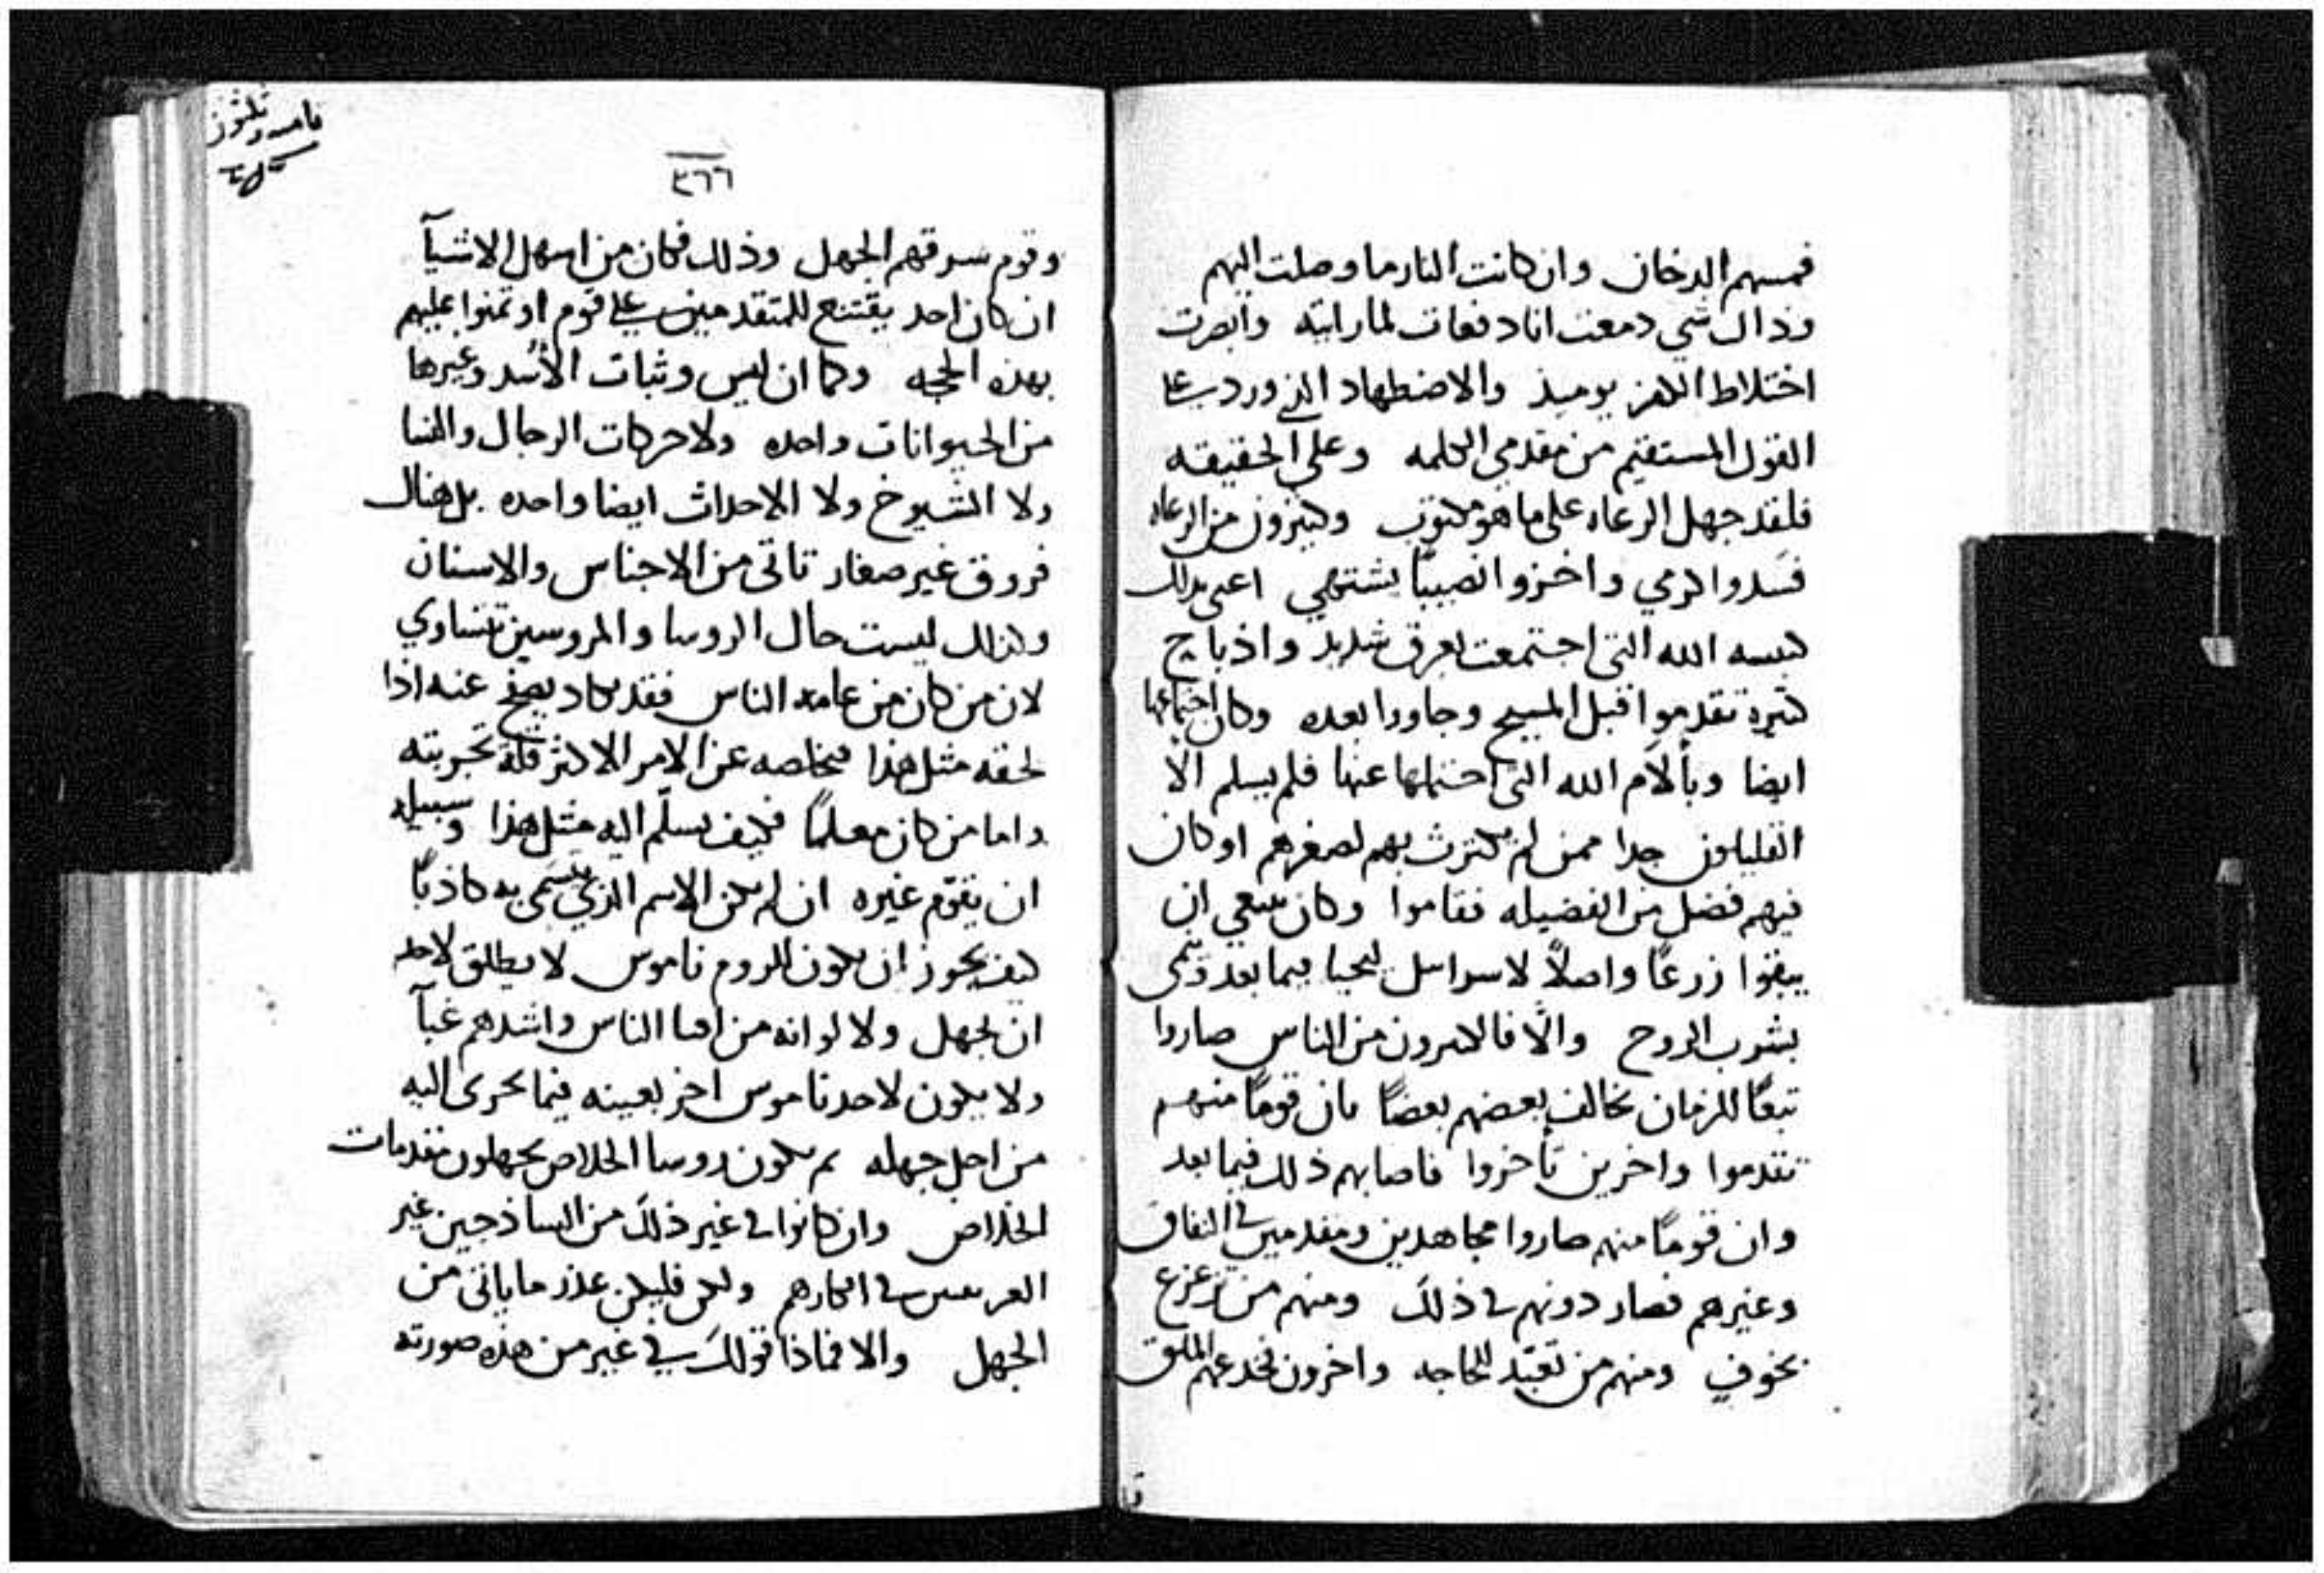 فمسهم الدخان وان كانت النار ما وصلت اليهم
وذاك شي دمعت انا دفعات لما رايته وابصرت
اختلاط الكفر يوميذ والاضطهاد الذي ورد على
القول المستقيم من مقدمي الكلمه وعلى الحقيقه
فلقد جهل الرعاه على ما هو مكتوب وكثيرون من الرعاه
فسدوا كرمي واخزوا نصيبًا يشتهي اعني بذلك
كنيسه الله التي اجتمعت بعرق شديد واذباح
كثيره تقدموا قبل المسيح وجاوا بعده وكان اجتماعها
ايضا وبآلام الله التي احتملها عنها فلم يسلم الا
القليلون جدا ممن لم يكترث بهم لصغرهم او كان
فيهم فضل من الفضيله فقاموا وكان ينبغي ان
يبقوا زرعًا واصلاً لاسراييل ليحيا فيما بعد وينمى
بشرب الروح والّا فالاكثرون من الناس صاروا
تبعًا للزمان يخالف بعضهم بعضًا بان قومًا منهم
تقدموا واخرين تأخروا فاصابهم ذلك فيما بعد
وان قومًا منهم صاروا مجاهدين ومقدمين في النفاق
وغيرهم فصار دونهم في ذلك ومنهم من تزعزع
بخوف ومنهم من تعبّد للحاجه واخرون خدعهم الملق
٣٦٦
وقوم سرقهم الجهل وذلك فكان من اسهل الاشيآ
ان كان احد يقتنع للمتقدمين على قوم اوتمنوا عليهم
بهذه الحجه وكما ان ليس وثبات الأسد وغيرها
من الحيوانات واحده ولا حركات الرجال والنسا
ولا الشيوخ ولا الاحداث ايضا واحده بل هناك
فروق غير صغار تاتى من الاجناس والاسنان
وكذلك ليست حال الروسا والمروسين تتساوي
لان من كان من عامة الناس فقد يكاد يصفح عنه اذا
لحقه مثل هذا فيخلصه عن الامر الاكثر قلة تجربته
واما من كان معلمًا فكيف يسلّم اليه مثل هذا وسبيله
ان يقوّم غيره ان لم يكن الاسم الذي يتسمى به كاذبًا
كيف يجوز ان يكون للروم ناموس لا يطلق لاحد
ان يجهل ولا لو انه من اجفا الناس واشدهم غبآ
ولا يكون لاحد ناموس اخر بعينه فيما يجرى اليه
من اجل جهله ثم يكون روسا الخلاص يجهلون مقدمات
الخلاص وان كانوا في غير ذلك من الساذجين غير
في افكارهم ولكن فليكن عذر ما ياتى من
الجهل والا فماذا قولك في غير من هذه صورته